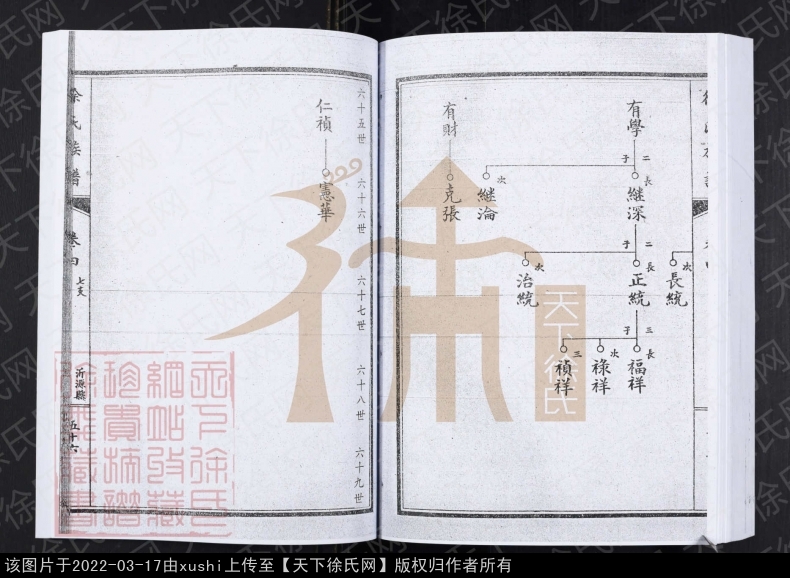 有學
二子
長
繼深
次
繼淪
二子
長
正統
次
治統
次
長統
三子
長
福祥
次
祿祥
三
禎祥
有財
克張
六十五世
六十六世
六十七世
六十八世
六十九世
仁禎
憲華
徐氏族譜
卷四
七支
沂源縣
五十六
天下徐氏
天下徐氏网
该图片于2022-03-17由xushi上传至【天下徐氏网】版权归作者所有